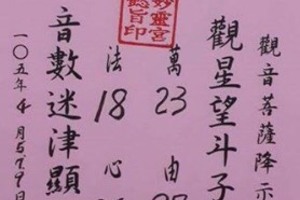 觀音菩薩降示
觀星望斗子
萬23由
靈宮
旨印
法18心
音數迷津顯
一〇五年4月5.7.9日